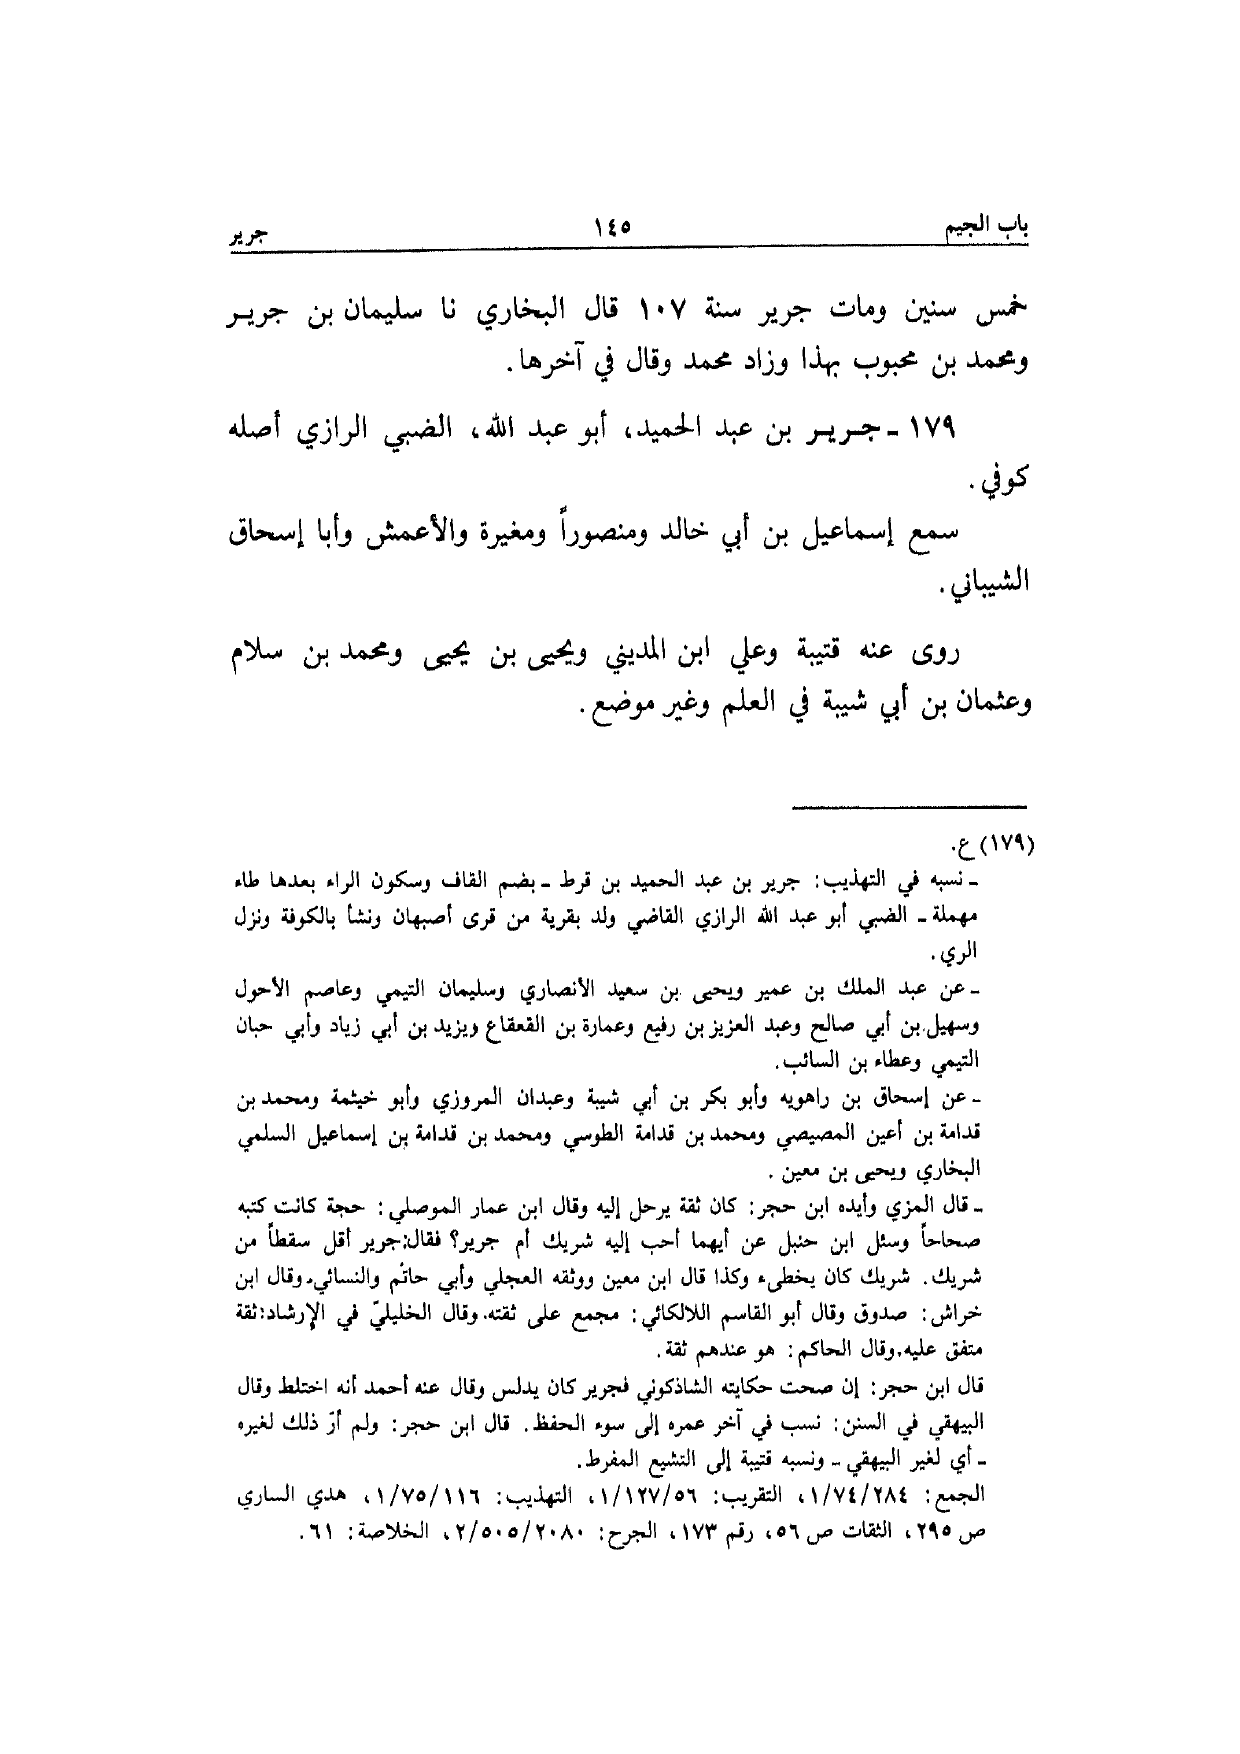 باب الجيم ١٤٥ جرير
خمس سنين ومات جرير سنة ١٠٧ قال البخاري نا سليمان بن جرير
ومحمد بن محبوب بهذا وزاد محمد وقال في آخرها.
١٧٩ ـ جرير بن عبد الحميد، أبو عبد الله، الضبي الرازي أصله
كوفي.
سمع إسماعيل بن أبي خالد ومنصوراً ومغيرة والأعمش وأبا إسحاق
الشيباني.
روى عنه قتيبة وعلي ابن المديني ويحيى بن يحيى ومحمد بن سلام
وعثمان بن أبي شيبة في العلم وغير موضع.
(١٧٩) ع.
ـ نسبه في التهذيب: جرير بن عبد الحميد بن قرط ـ بضم القاف وسكون الراء بعدها طاء
مهملة ـ الضبي أبو عبد الله الرازي القاضي ولد بقرية من قرى أصبهان ونشأ بالكوفة ونزل
الري.
ـ عن عبد الملك بن عمير ويحيى بن سعيد الأنصاري وسليمان التيمي وعاصم الأحول
وسهيل بن أبي صالح وعبد العزيز بن رفيع وعمارة بن القعقاع ويزيد بن أبي زياد وأبي حبان
التيمي وعطاء بن السائب.
ـ عن إسحاق بن راهويه وأبو بكر بن أبي شيبة وعبدان المروزي وأبو خيثمة ومحمد بن
قدامة بن أعين المصيصي ومحمد بن قدامة الطوسي ومحمد بن قدامة بن إسماعيل السلمي
البخاري ويحيى بن معين .
ـ قال المزي وأيده ابن حجر: كان ثقة يرحل إليه وقال ابن عمار الموصلي: حجة كانت كتبه
صحاحاً وسئل ابن حنبل عن أيهما أحب إليه شريك أم جرير؟ فقال:جرير أقل سقطاً من
شريك. شريك كان يخطىء وكذا قال ابن معين ووثقه العجلي وأبي حاتم والنسائي.وقال ابن
خراش: صدوق وقال أبو القاسم اللالكائي: مجمع على ثقته.وقال الخليليّ في الإرشاد:ثقة
متفق عليه.وقال الحاكم: هو عندهم ثقة.
قال ابن حجر: إن صحت حكايته الشاذكوني فجرير كان يدلس وقال عنه أحمد أنه اختلط وقال
البيهقي في السنن: نسب في آخر عمره إلى سوء الحفظ. قال ابن حجر: ولم أرّ ذلك لغيره
ـ أي لغير البيهقي ـ ونسبه قتيبة إلى التشيع المفرط.
الجمع: ١/٧٤/٢٨٤، التقريب: ١/١٢٧/٥٦، التهذيب: ١/٧٥/١١٦، هدي الساري
ص ٢٩٥، الثقات ص ٥٦، رقم ١٧٣، الجرح: ٢/٥٠٥/٢٠٨٠، الخلاصة: ٦١.